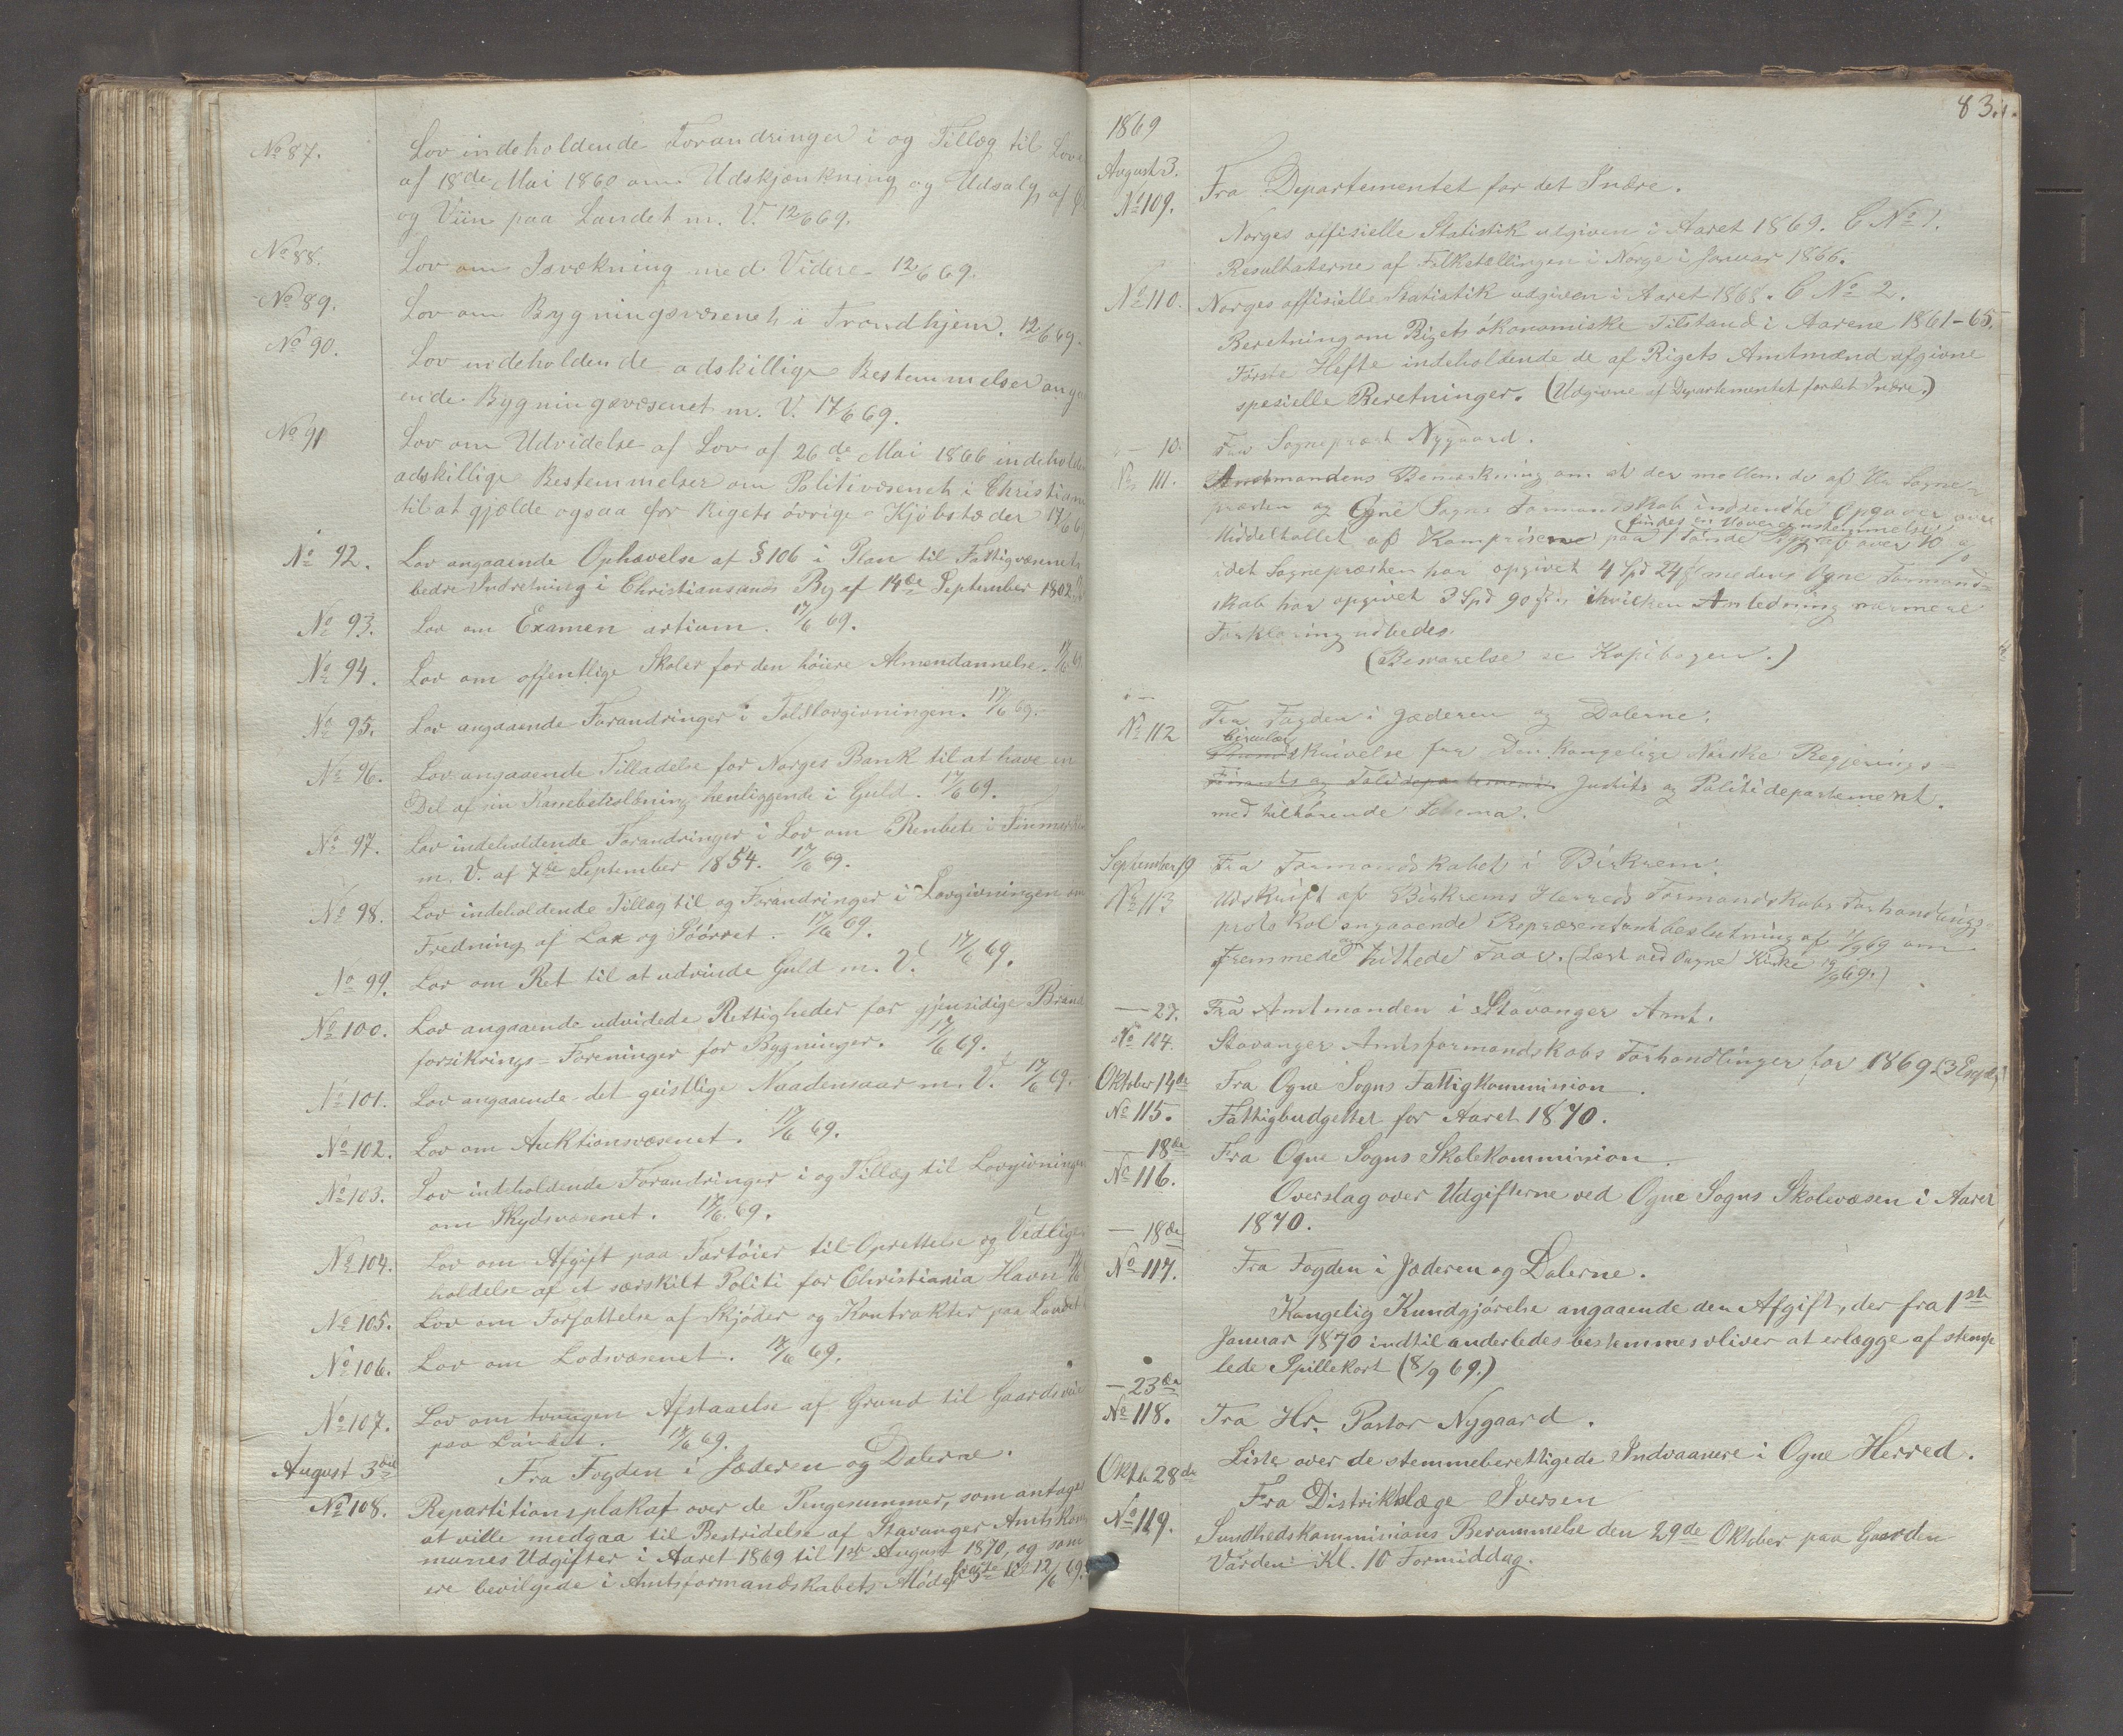 No 87. Lov indeholdende Forandringer i og Tillæg til Love
af 18de Mai 1860 om Udskjænkning og Udsalg af
og Viin paa Landet m. V. 12/6 69.
No 88. Lov om med Videre 12/6 69.
No 89. Lov om Bygningsvæsenet i Trondhjem. 12/6 69.
No 90. Lov indeholdende adskillige Bestemmelser anga
ende Bygningsvæsenet m. V. 17/6 69.
No 91 Lov om Udvidelse af Lov af 26de Mai 1866 indehold
adskillige Bestemmelser om Politivæsenet i Christian
til at gjælde ogsaa for Rigets övrige Kjöbstæder 17/6 6
No 92. Lov angaaende Ophævelse af § 106 i Plan til Fattigvæsenets
bedre Indretning i Christiansands By af 14de September 1802.
No 93. Lov om Examen artium. 17/6 69.
No 94. Lov om offentlige Skoler for den höiere Almendannelse. 17/6 69
No 95. Lov angaaende Forandringer i Toldlovgivningen. 17/6 69.
No 96. Lov angaaende Tilladelse for Norges Bank til at have en
Del af sin Kassebeholdning henliggende i Guld. 17/6 69.
No 97. Lov indeholdende Forandringer i Lov om Renbete i Finmarken
m. V. af 7de September 1854. 17/6 69.
No 98. Lov indeholdende Tillæg til og Forandringer i Lovgivningen om
Fredning af Lax og Söörret. 17/6 69.
No 99. Lov om Ret til at udvinde Guld m. V. 17/6 69.
No 100. Lov angaaende udvidede Rettigheder for gjensidige Brand
forsikrings=Foreninger for Bygninger. 17/6 69.
No 101. Lov angaaende det geistlige Naadensaar m. V. 17/6 69.
No 102. Lov om Auktionsvæsenet. 17/6 69.
No 103. Lov indeholdende Forandringer i og Tillæg til Lovgivningen
om Skydsvæsenet. 17/6 69.
No 104. Lov om Afgift paa Fartöier til Oprettelse og Vedlige
holdelse af et særskilt Politi for Christiania Havn 17/6
No 105. Lov om Forfattelse af Skjöder og Kontrakter paa Landet
No 106. Lov om Lodsvæsenet. 17/6 69.
No 107. Lov om tvungen Afstaaelse af Grund til Gaardsveie
paa Landet. 17/6 69.
August 3die Fra Fogden i Jæderen og Dalerne.
No 108. Repartitionsplakat over de Pengesummer, som antages
at ville medgaa til Bestridelse af Stavanger Amtskom
munes Udgifter i Aaret 1869 til 1ste August 1870, og som
ere bevilgede i Amtsformandskabets Möde fra 5te til 12/6 69.
83.
1869
August 3. Fra Departementet for det Indre.
No 109. Norges offisielle Statistik udgiven i Aaret 1869. C No 1.
Resultaterne af Folketællingen i Norge i Januar 1866.
No 110. Norges offisielle Statistik udgiven i Aaret 1868. C No 2.
Beretning om Rigets ökonomiske Tilstand i Aarene 1861-65.
Förste Hefte indeholdende de af Rigets Amtmænd afgivne
spesielle Beretninger. (Udgivne af Departementet for det Indre.)
— 10. Fra Sognepræst Nygaard.
No 111. Amtmandens Bemærkning om at der mellem de af Hr Sogne-
præsten og Ogne Sogns Formandskab indsendte Opgaver over
findes en Uoverensstemmelse
Middeltallet af Kornpriserne paa 1 Tönde Byg af over 10 %
idet Sognepræsten har opgivet 4 Spd 24 ß medens Ogne Formand=
skab har opgivet 3 Spd 90 ß, i hvilken Anledning nærmere
Forklaring udbedes.
(Besvarelse se Kopibogen.)
No 112 Fra Fogden i Jæderen og Dalerne:
Circulær
skrivelse fra Den Kongelige Norske Regjerings=
Finants og Tolddepartement. Justits og Politidepartement.
med tilhörende Schema.
September 19 Fra Formandskabet i Birkrem:
No 113 Udskrift af Birkrems Herreds Formandskabs Forhandlings-
protokol angaaende Repræsentantbeslutning af 1/9 69 om
fremmede Faar. (Læst ved Ougne Kirke 19/9 69.)
— 27. Fra Amtmanden i Stavanger Amt.
No 114. Stavanger Amtsformandskabs Forhandlinger for 1869
Oktober 14de Fra Ogne Sogns Fattigkommission.
No 115. Fattigbudgettet for Aaret 1870.
— 18de Fra Ogne Sogns Skolekommission.
No 116. Overslag over Udgifterne ved Ogne Sogns Skolevæsen i Aaret
1870.
— 18de
No 117. Fra Fogden i Jæderen og Dalerne.
Kongelig Kundgjörelse angaaende den Afgift, der fra 1ste
Januar 1870 indtil anderledes bestemmes bliver at erlægge af stemp
lede Spillekort (8/9 69.)
— 23de
No 118. Fra Hr. Pastor Nygaard.
Liste over de stemmeberettigede Indvaanere i Ogne Herred.
Oktb. 28de Fra Distriktslæge Iversen
No 119. Sundhedskommissions Berammelse den 29de Oktober paa Gaarden
Varden Kl. 10 Formiddag.